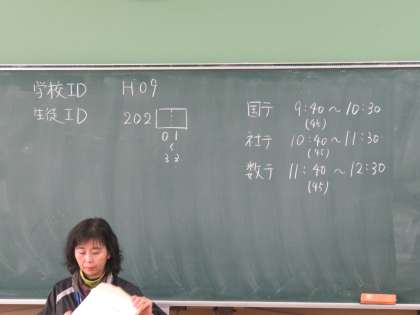 学校ID H09
生徒ID 202
01
〜
33
国テ 9:40〜10:30
(45)
社テ 10:40〜11:30
(45)
数テ 11:40〜12:30
(45)